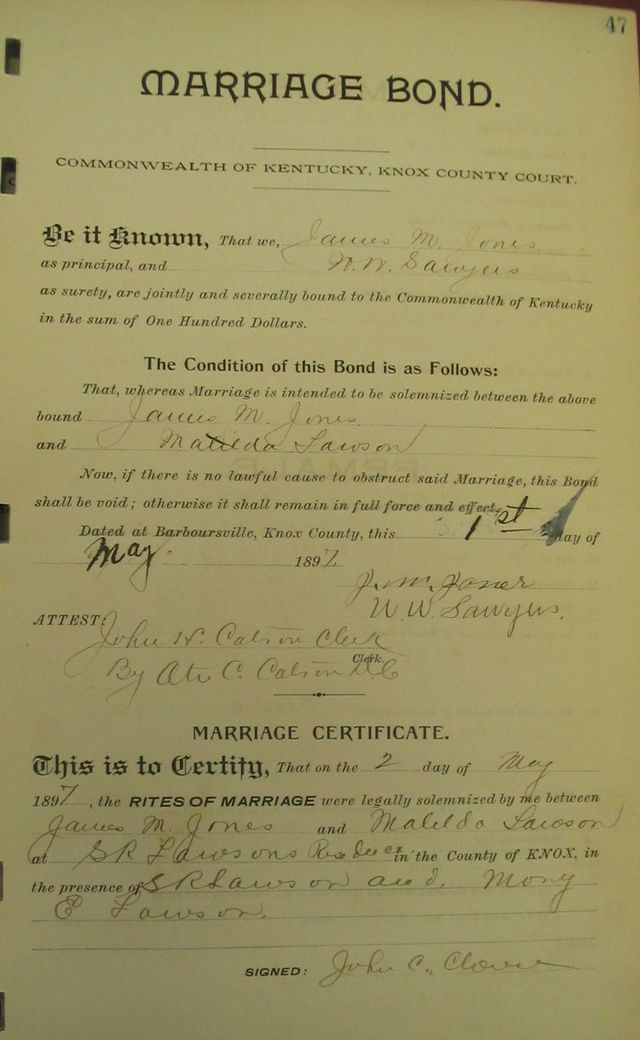 47
MARRIAGE BOND.
COMMONWEALTH OF KENTUCKY, KNOX COUNTY COURT.
Be it Known, That we, James M. Jones
as principal, and W. W. Sawyers
as surety, are jointly and severally bound to the Commonwealth of Kentucky
in the sum of One Hundred Dollars.
The Condition of this Bond is as Follows:
That, whereas Marriage is intended to be solemnized between the above
bound James M. Jones
and Matilda Lawson
Now, if there is no lawful cause to obstruct said Marriage, this Bond
shall be void; otherwise it shall remain in full force and effect.
Dated at Barboursville, Knox County, this 1st day of
May 1897
J. M. Jones
W. W. Sawyers.
ATTEST:
John H. Catson Clerk
By C. Catson D.C
Clerk
MARRIAGE CERTIFICATE.
This is to Certify, That on the 2 day of May
1897, the RITES OF MARRIAGE were legally solemnized by me between
James M. Jones and Matilda Lawson
at S R Lawsons in the County of KNOX, in
the presence of S R Lawson and Mary
E Lawson.
SIGNED: John C.